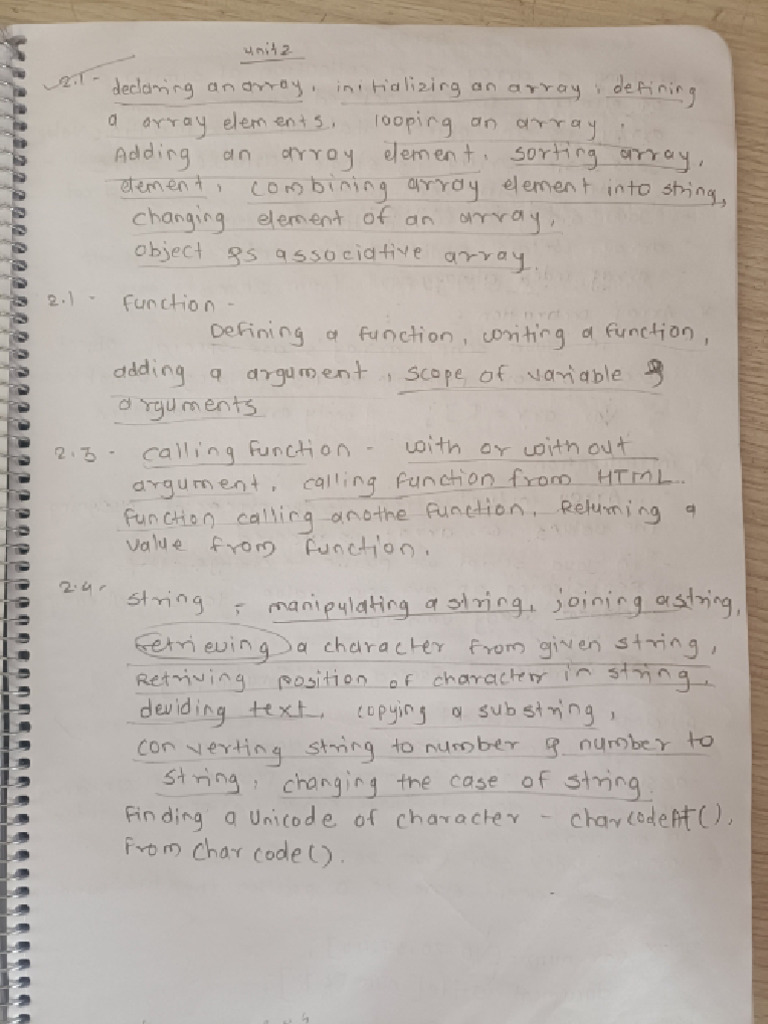 unit 2
2.1- declaring an array, initializing an array, defining
a array elements, looping an array,
Adding an array element, sorting array,
element, combining array element into string,
changing element of an array,
object as associative array
2.1- function -
Defining a function, writing a function,
adding a argument, scope of variable &
arguments
2.3- calling function - with or with out
argument, calling function from HTML.
function calling anothe function, Returning a
value from function.
2.4- string - manipulating a string, joining a string,
Retrieving a character from given string,
Retriving position of character in string,
deviding text, copying a substring,
converting string to number & number to
string, changing the case of string.
Finding a Unicode of character - charcodeAt(),
From Char code().